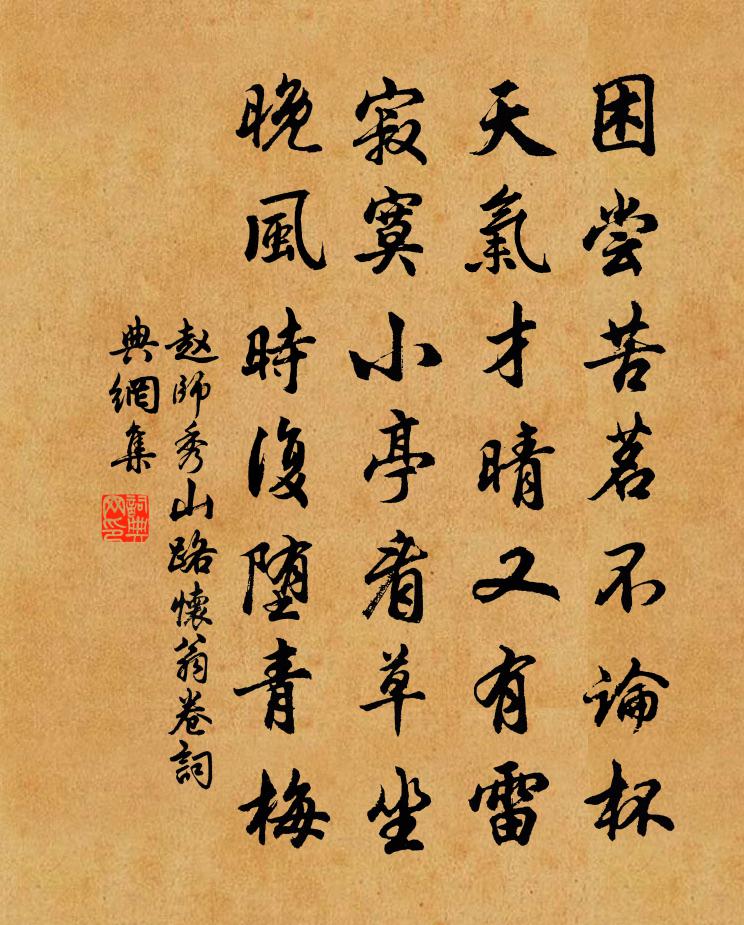 困尝苦茗不論杯
天氣才晴又有雷
寂寞小亭看草坐
晚風時復堕青梅
赵師秀山路懷翁卷詞
典網集
詞典
网印